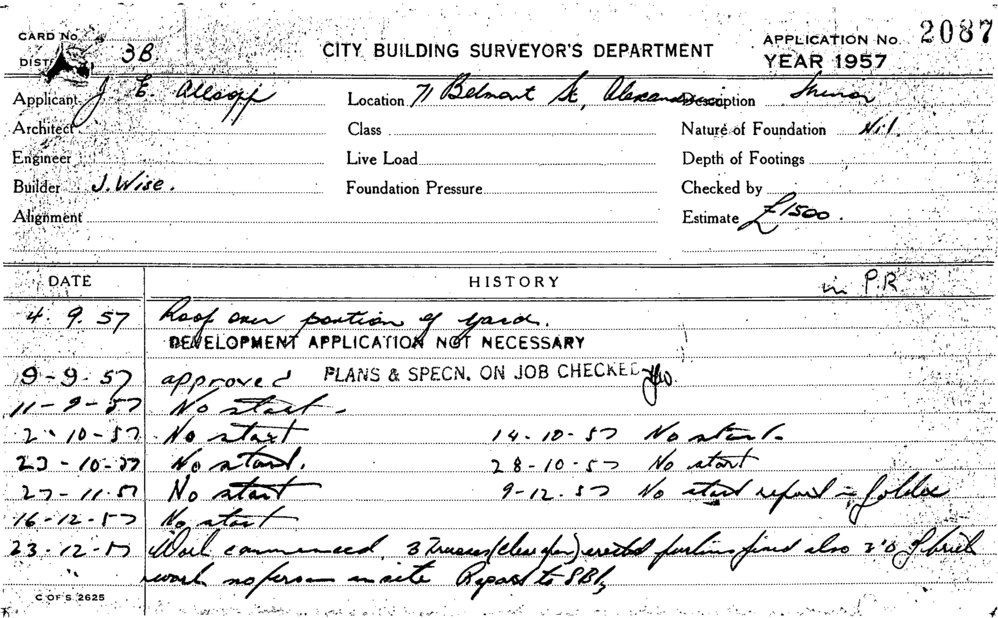 CARD No.
CITY BUILDING SURVEYOR'S DEPARTMENT
APPLICATION No. 2087
DIST. 3B
YEAR 1957
Applicant J. E. Allsopp Location 71 Belmont St, Description
Architect Class Nature of Foundation Nil.
Engineer Live Load Depth of Footings
Builder J. Wise. Foundation Pressure Checked by
Alignment Estimate £1500.
DATE HISTORY in P.R
4. 9. 57 Roof over portion of yard.
DEVELOPMENT APPLICATION NOT NECESSARY
9-9-57 approved PLANS & SPECN. ON JOB CHECKED
11-9-57 No start.
2-10-57 No start 14-10-57 No start.
23-10-57 No start. 28-10-57 No start
27-11-57 No start 9-12-57 No start report in folder
16-12-57 No start
23-12-57 Work commenced, 3 Trusses erected purlins fixed also 2'0 of brick
work no person on site
C OF S 2625